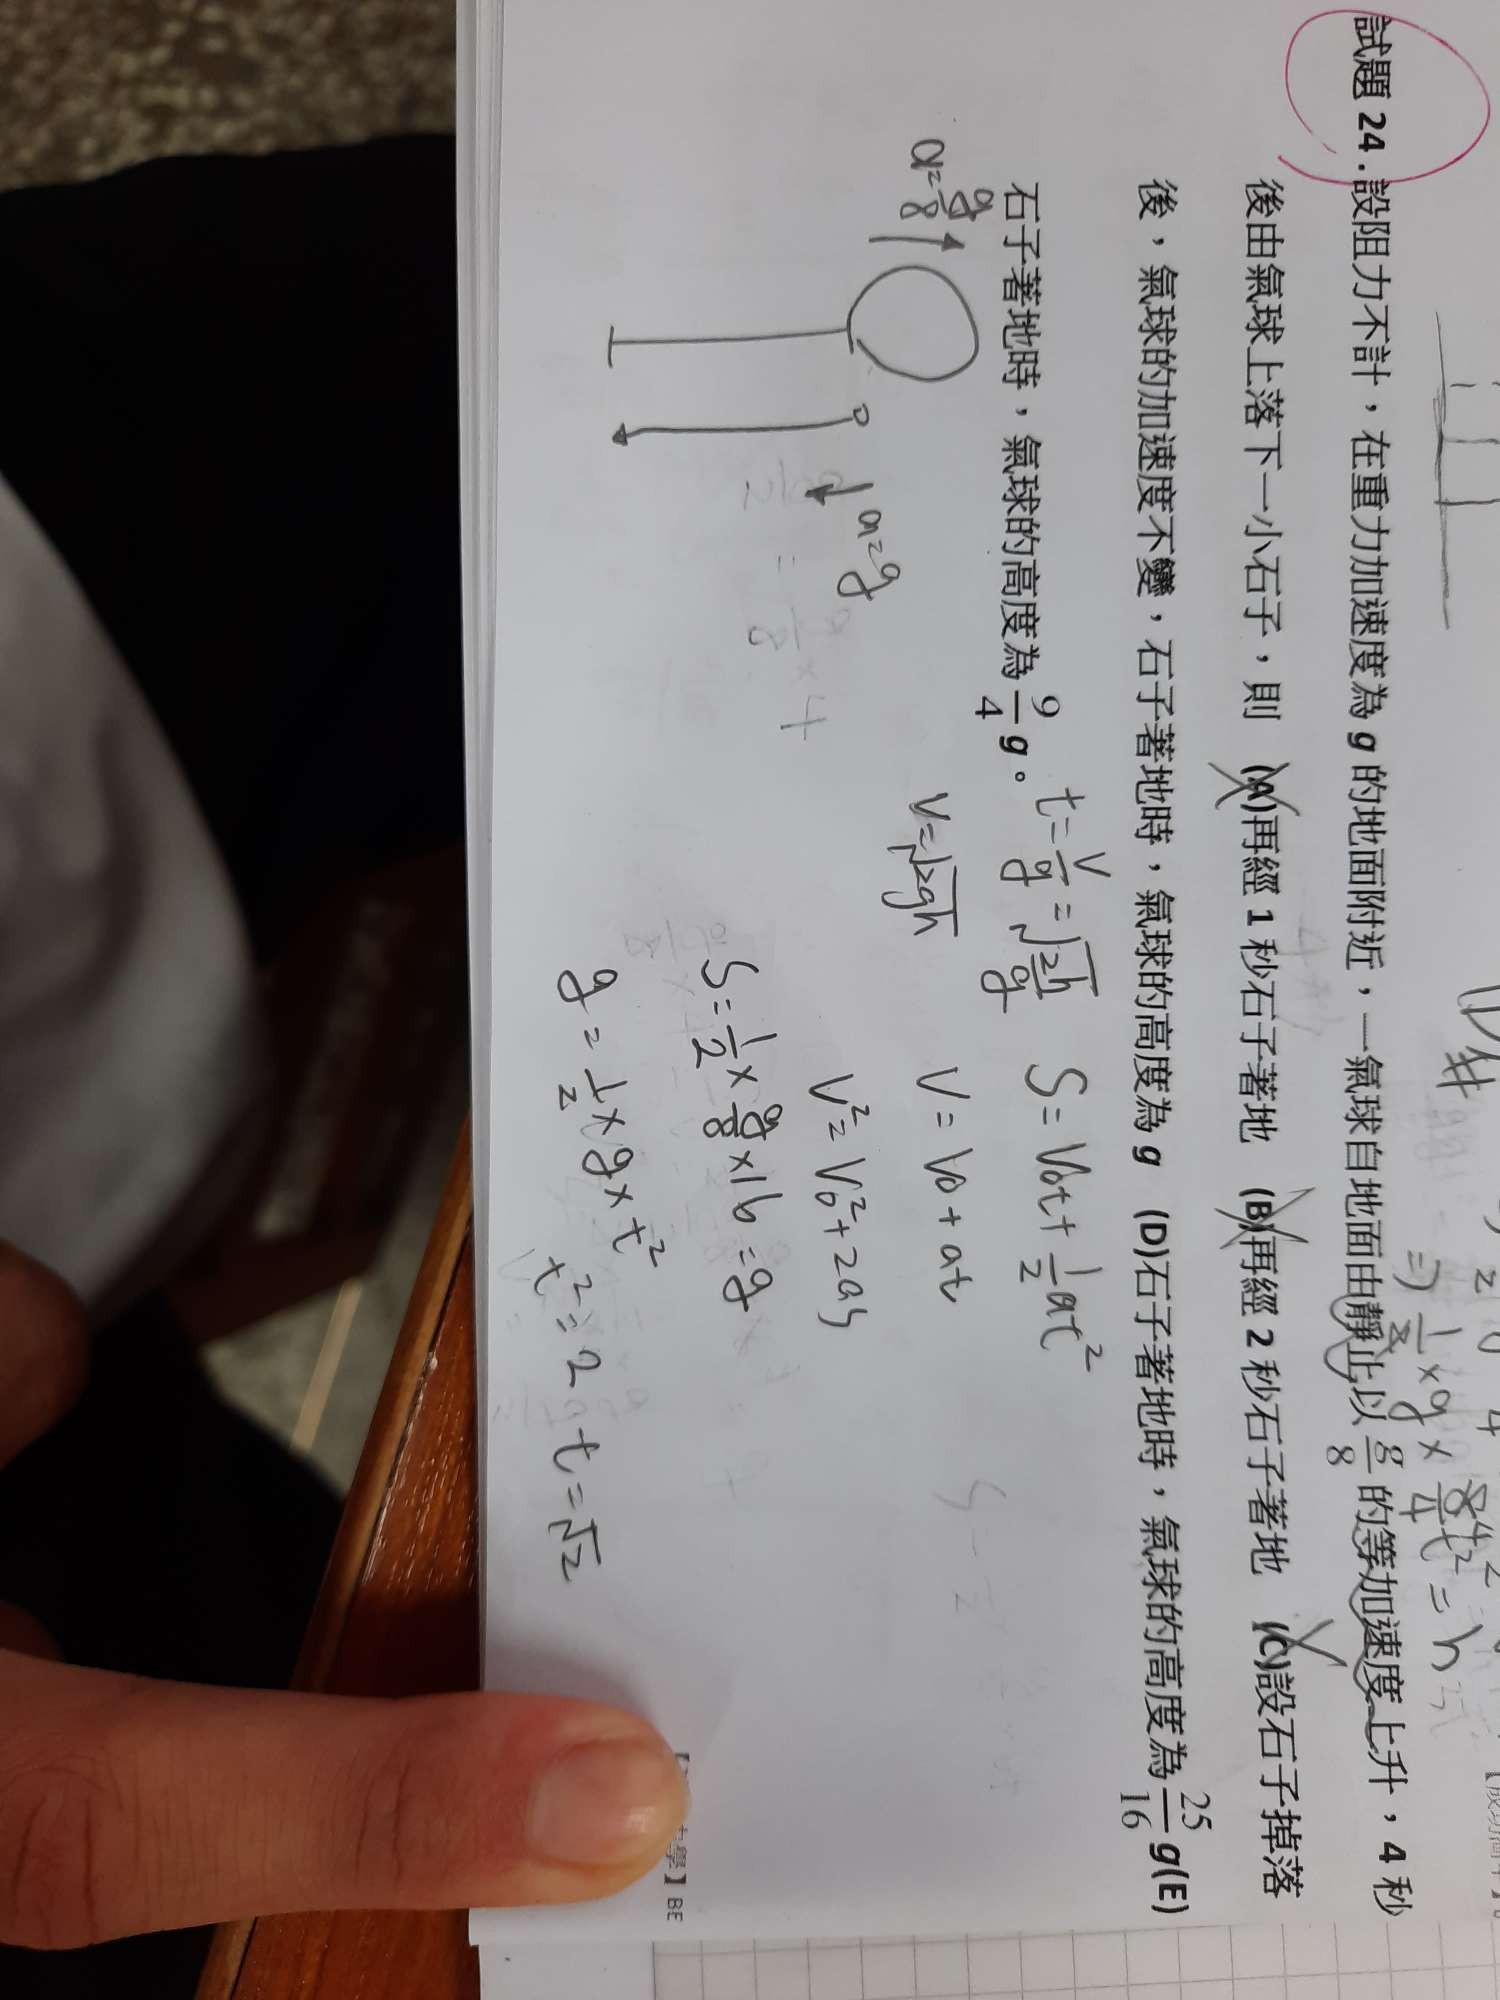 試題 24.設阻力不計，在重力加速度為 g 的地面附近，一氣球自地面由靜止以 g/8 的等加速度上升，4 秒
後由氣球上落下一小石子，則 (A)再經 1 秒石子著地 (B)再經 2 秒石子著地 (C)設石子掉落
後，氣球的加速度不變，石子著地時，氣球的高度為 g (D)石子著地時，氣球的高度為 25/16 g(E)
石子著地時，氣球的高度為 9/4 g。
t=v/g=√(2h/g)
S=V₀t+1/2at²
a=g/8
V=√2gh
V=V₀+at
a=g
V²=V₀²+2as
S=1/2×g/8×16=g
g=1/2×g×t²
t²=2
t=√2
學】BE